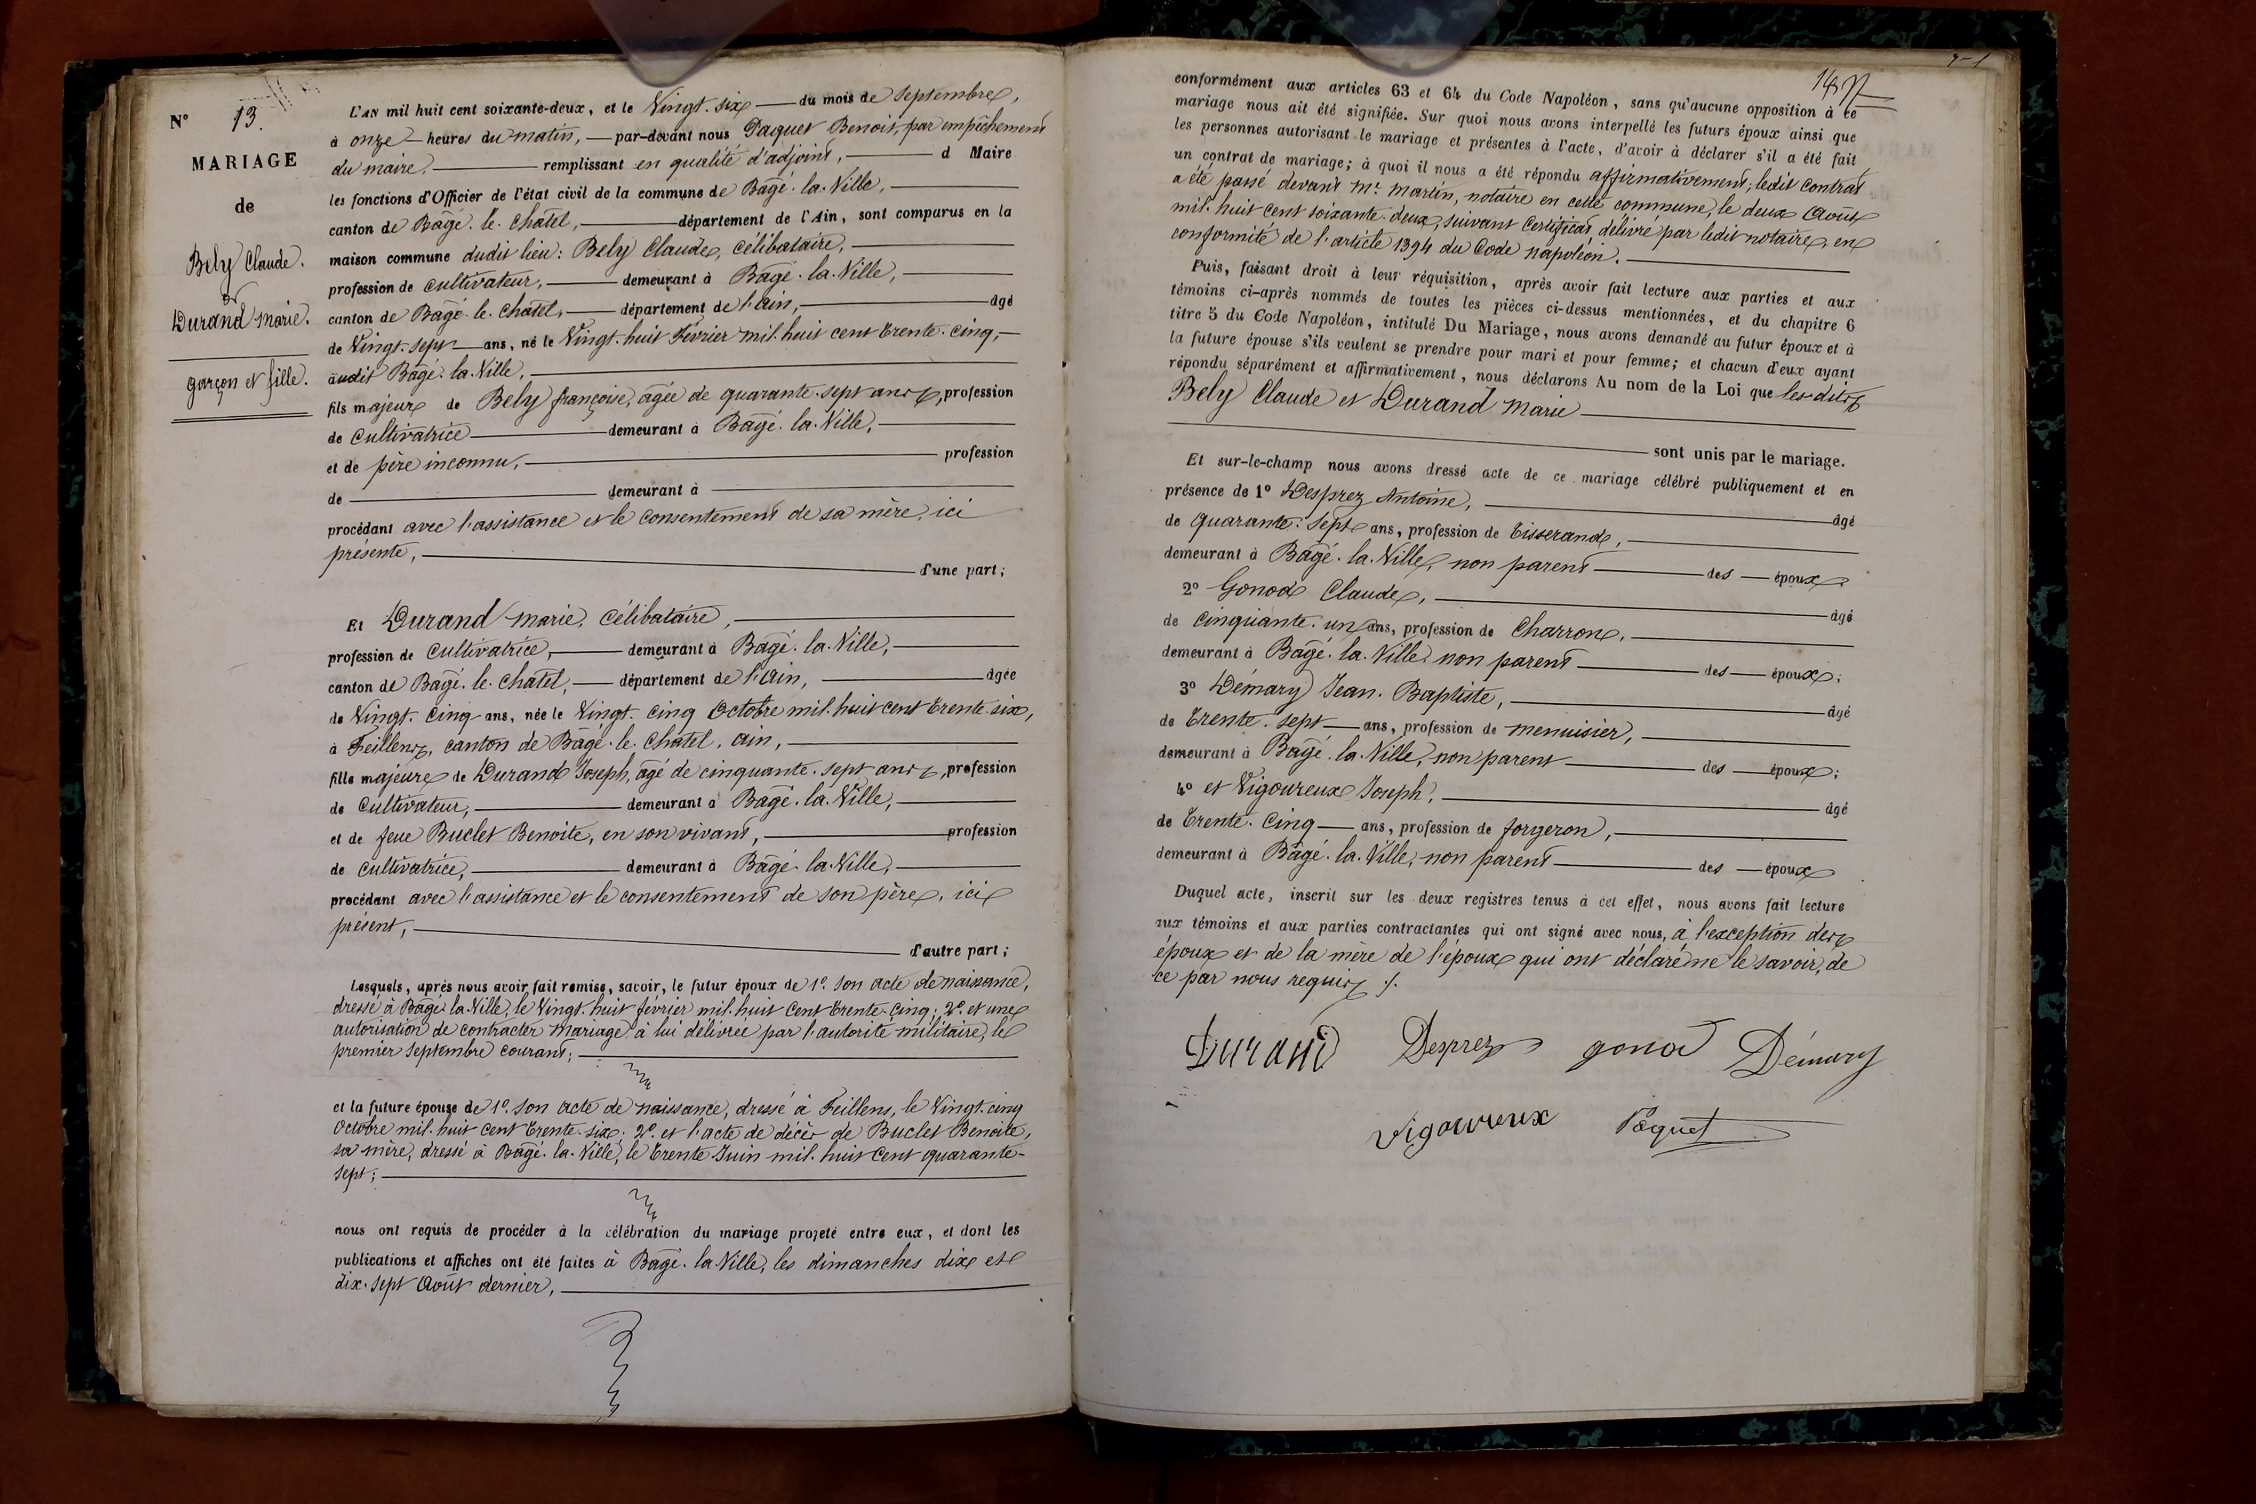 N° 13.
MARIAGE
de
Bely Claude.
et
Durand Marie.
garçon et fille.
L'AN mil huit cent soixante-deux, et le Vingt-six du mois de Septembre,
à onze heures du matin, par-devant nous Paquet Benoit, par empêchement
du maire, remplissant en qualité d'adjoint, d Maire
les fonctions d'Officier de l'état civil de la commune de Bâgé-la-Ville,
canton de Bâgé-le-Châtel, département de l'Ain, sont comparus en la
maison commune dudit lieu: Bely Claude, célibataire,
profession de cultivateur, demeurant à Bâgé-la-Ville,
canton de Bâgé-le-Châtel, département de l'ain, âgé
de Vingt-sept ans, né le Vingt-huit Février mil-huit cent trente-cinq,
audit Bâgé-la-Ville,
fils majeur de Bely françoise, âgée de quarante-sept ans, profession
de Cultivatrice demeurant à Bâgé-la-Ville,
et de père inconnu, profession
de demeurant à
procédant avec l'assistance et le consentement de sa mère, ici
présente, d'une part;
Et Durand Marie, Célibataire,
profession de Cultivatrice, demeurant à Bâgé-la-Ville,
canton de Bâgé-le-Châtel, département de l'ain, âgée
de Vingt-Cinq ans, née le Vingt-cinq Octobre mil-huit cent trente-six,
à Feillens, canton de Bâgé-le-Châtel, ain,
fille majeure de Durand Joseph, âgé de cinquante-sept ans, profession
de Cultivateur, demeurant à Bâgé-la-Ville,
et de feue Buclet Benoite, en son vivant, profession
de cultivatrice, demeurant à Bâgé-la-Ville,
procédant avec l'assistance et le consentement de son père, ici
présent, d'autre part;
Lesquels, après nous avoir fait remise, savoir, le futur époux de 1°. son acte de naissance,
dressé à Bâgé-la-Ville, le Vingt-huit février mil-huit cent trente-cinq; 2°. et une
autorisation de contracter mariage à lui délivrée par l'autorité militaire, le
premier Septembre courant;
et la future épouse de 1°. son acte de naissance, dressé à Feillens, le Vingt-cinq
Octobre mil-huit cent trente-six; 2°. et l'acte de décès de Buclet Benoite,
sa mère, dressé à Bâgé-la-Ville, le trente Juin mil-huit cent quarante-
sept;
nous ont requis de procéder à la célébration du mariage projeté entre eux, et dont les
publications et affiches ont été faites à Bâgé-la-Ville, les dimanches dix et
dix-sept Août dernier,
conformément aux articles 63 et 64 du Code Napoléon, sans qu'aucune opposition à ce
mariage nous ait été signifiée. Sur quoi nous avons interpellé les futurs époux ainsi que
les personnes autorisant le mariage et présentes à l'acte, d'avoir à déclarer s'il a été fait
un contrat de mariage; à quoi il nous a été répondu affirmativement; ledit contrat
a été passé devant Mr. Martin, notaire en cette commune, le deux Août
mil-huit cent soixante-deux, suivant Certificat délivré par ledit notaire, en
conformité de l'article 1394 du Code napoléon.
Puis, faisant droit à leur réquisition, après avoir fait lecture aux parties et aux
témoins ci-après nommés de toutes les pièces ci-dessus mentionnées, et du chapitre 6
titre 5 du Code Napoléon, intitulé Du Mariage, nous avons demandé au futur époux et à
la future épouse s'ils veulent se prendre pour mari et pour femme; et chacun d'eux ayant
répondu séparément et affirmativement, nous déclarons Au nom de la Loi que les dits
Bely Claude et Durand Marie
sont unis par le mariage.
Et sur-le-champ nous avons dressé acte de ce mariage célébré publiquement et en
présence de 1° Desprez Antoine, âgé
de quarante-sept ans, profession de tisserand,
demeurant à Bâgé-la-Ville, non parent des époux
2° Gonod Claude, âgé
de Cinquante-un ans, profession de Charron,
demeurant à Bâgé-la-Ville, non parent des époux;
3° Démary Jean-Baptiste, âgé
de trente-sept ans, profession de menuisier,
demeurant à Bâgé-la-Ville, non parent des époux;
4° et Vigoureux Joseph, âgé
de trente-cinq ans, profession de forgeron,
demeurant à Bâgé-la-Ville, non parent des époux
Duquel acte, inscrit sur les deux registres tenus à cet effet, nous avons fait lecture
aux témoins et aux parties contractantes qui ont signé avec nous, à l'exception des
époux et de la mère de l'époux qui ont déclaré ne le savoir, de
ce par nous requis ./.
Durand Desprez gonod Démary
Vigoureux Paquet